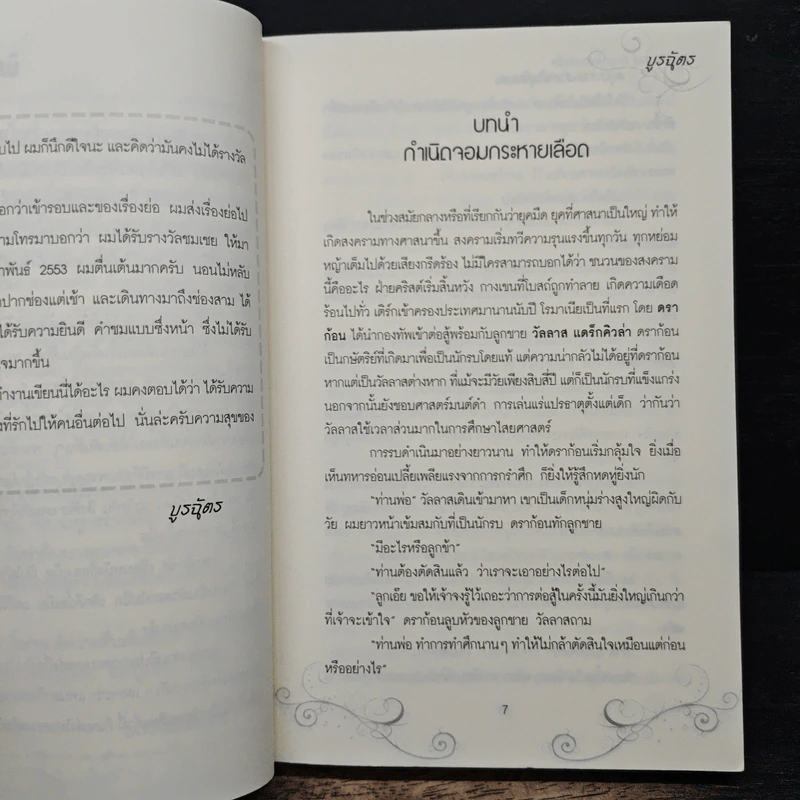 บไป ผมก็นึกดีใจนะ และคิดว่ามันคงไม่ได้รางวัล
อกว่าเข้ารอบและของเรื่องย่อ ผมส่งเรื่องย่อไป
ามโทรมาบอกว่า ผมได้รับรางวัลชมเชย ให้มา
าพันธ์ 2553 ผมตื่นเต้นมากครับ นอนไม่หลับ
กปากช่องแต่เช้า และเดินทางมาถึงช่องสาม ได้
ได้รับความยินดี คำชมแบบซึ่งหน้า ซึ่งไม่ได้รับ
จมากขึ้น
ทำงานเขียนนี่ได้อะไร ผมคงตอบได้ว่า ได้รับความ
งที่รักไปให้คนอื่นต่อไป นั่นล่ะครับความสุขของ
บูรฉัตร
บูรฉัตร
บทนำ
กำเนิดจอมกระหายเลือด
ในช่วงสมัยกลางหรือที่เรียกกันว่ายุคมืด ยุคที่ศาสนาเป็นใหญ่ ทำให้
เกิดสงครามทางศาสนาขึ้น สงครามเริ่มทวีความรุนแรงขึ้นทุกวัน ทุกหย่อม
หญ้าเต็มไปด้วยเสียงกรีดร้อง ไม่มีใครสามารถบอกได้ว่า ชนวนของสงคราม
นี้คืออะไร ฝ่ายคริสต์เริ่มสิ้นหวัง กางเขนที่โบสถ์ถูกทำลาย เกิดความเดือด
ร้อนไปทั่ว เติร์กเข้าครองประเทศมานานนับปี โรมาเนียเป็นที่แรก โดย ดรา
ก้อน ได้นำกองทัพเข้าต่อสู้พร้อมกับลูกชาย วัลลาส แดร็กคิวล่า ดราก้อน
เป็นกษัตริย์ที่เกิดมาเพื่อเป็นนักรบโดยแท้ แต่ความน่ากลัวไม่ได้อยู่ที่ดราก้อน
หากแต่เป็นวัลลาสต่างหาก ที่แม้จะมีวัยเพียงสิบสี่ปี แต่ก็เป็นนักรบที่แข็งแกร่ง
นอกจากนั้นยังชอบศาสตร์มนต์ดำ การเล่นแร่แปรธาตุตั้งแต่เด็ก ว่ากันว่า
วัลลาสใช้เวลาส่วนมากในการศึกษาไสยศาสตร์
การรบดำเนินมาอย่างยาวนาน ทำให้ดราก้อนเริ่มกลุ้มใจ ยิ่งเมื่อ
เห็นทหารอ่อนเปลี้ยเพลียแรงจากการกรำศึก ก็ยิ่งให้รู้สึกหดหู่ยิ่งนัก
"ท่านพ่อ" วัลลาสเดินเข้ามาหา เขาเป็นเด็กหนุ่มร่างสูงใหญ่ผิดกับ
วัย ผมยาวหน้าเข้มสมกับที่เป็นนักรบ ดราก้อนทักลูกชาย
"มีอะไรหรือลูกข้า"
"ท่านต้องตัดสินแล้ว ว่าเราจะเอาอย่างไรต่อไป"
"ลูกเอ๊ย ขอให้เจ้าจงรู้ไว้เถอะว่าการต่อสู้ในครั้งนี้มันยิ่งใหญ่เกินกว่า
ที่เจ้าจะเข้าใจ" ดราก้อนลูบหัวของลูกชาย วัลลาสถาม
"ท่านพ่อ ทำการทำศึกนานๆ ทำให้ไม่กล้าตัดสินใจเหมือนแต่ก่อน
หรืออย่างไร"
7